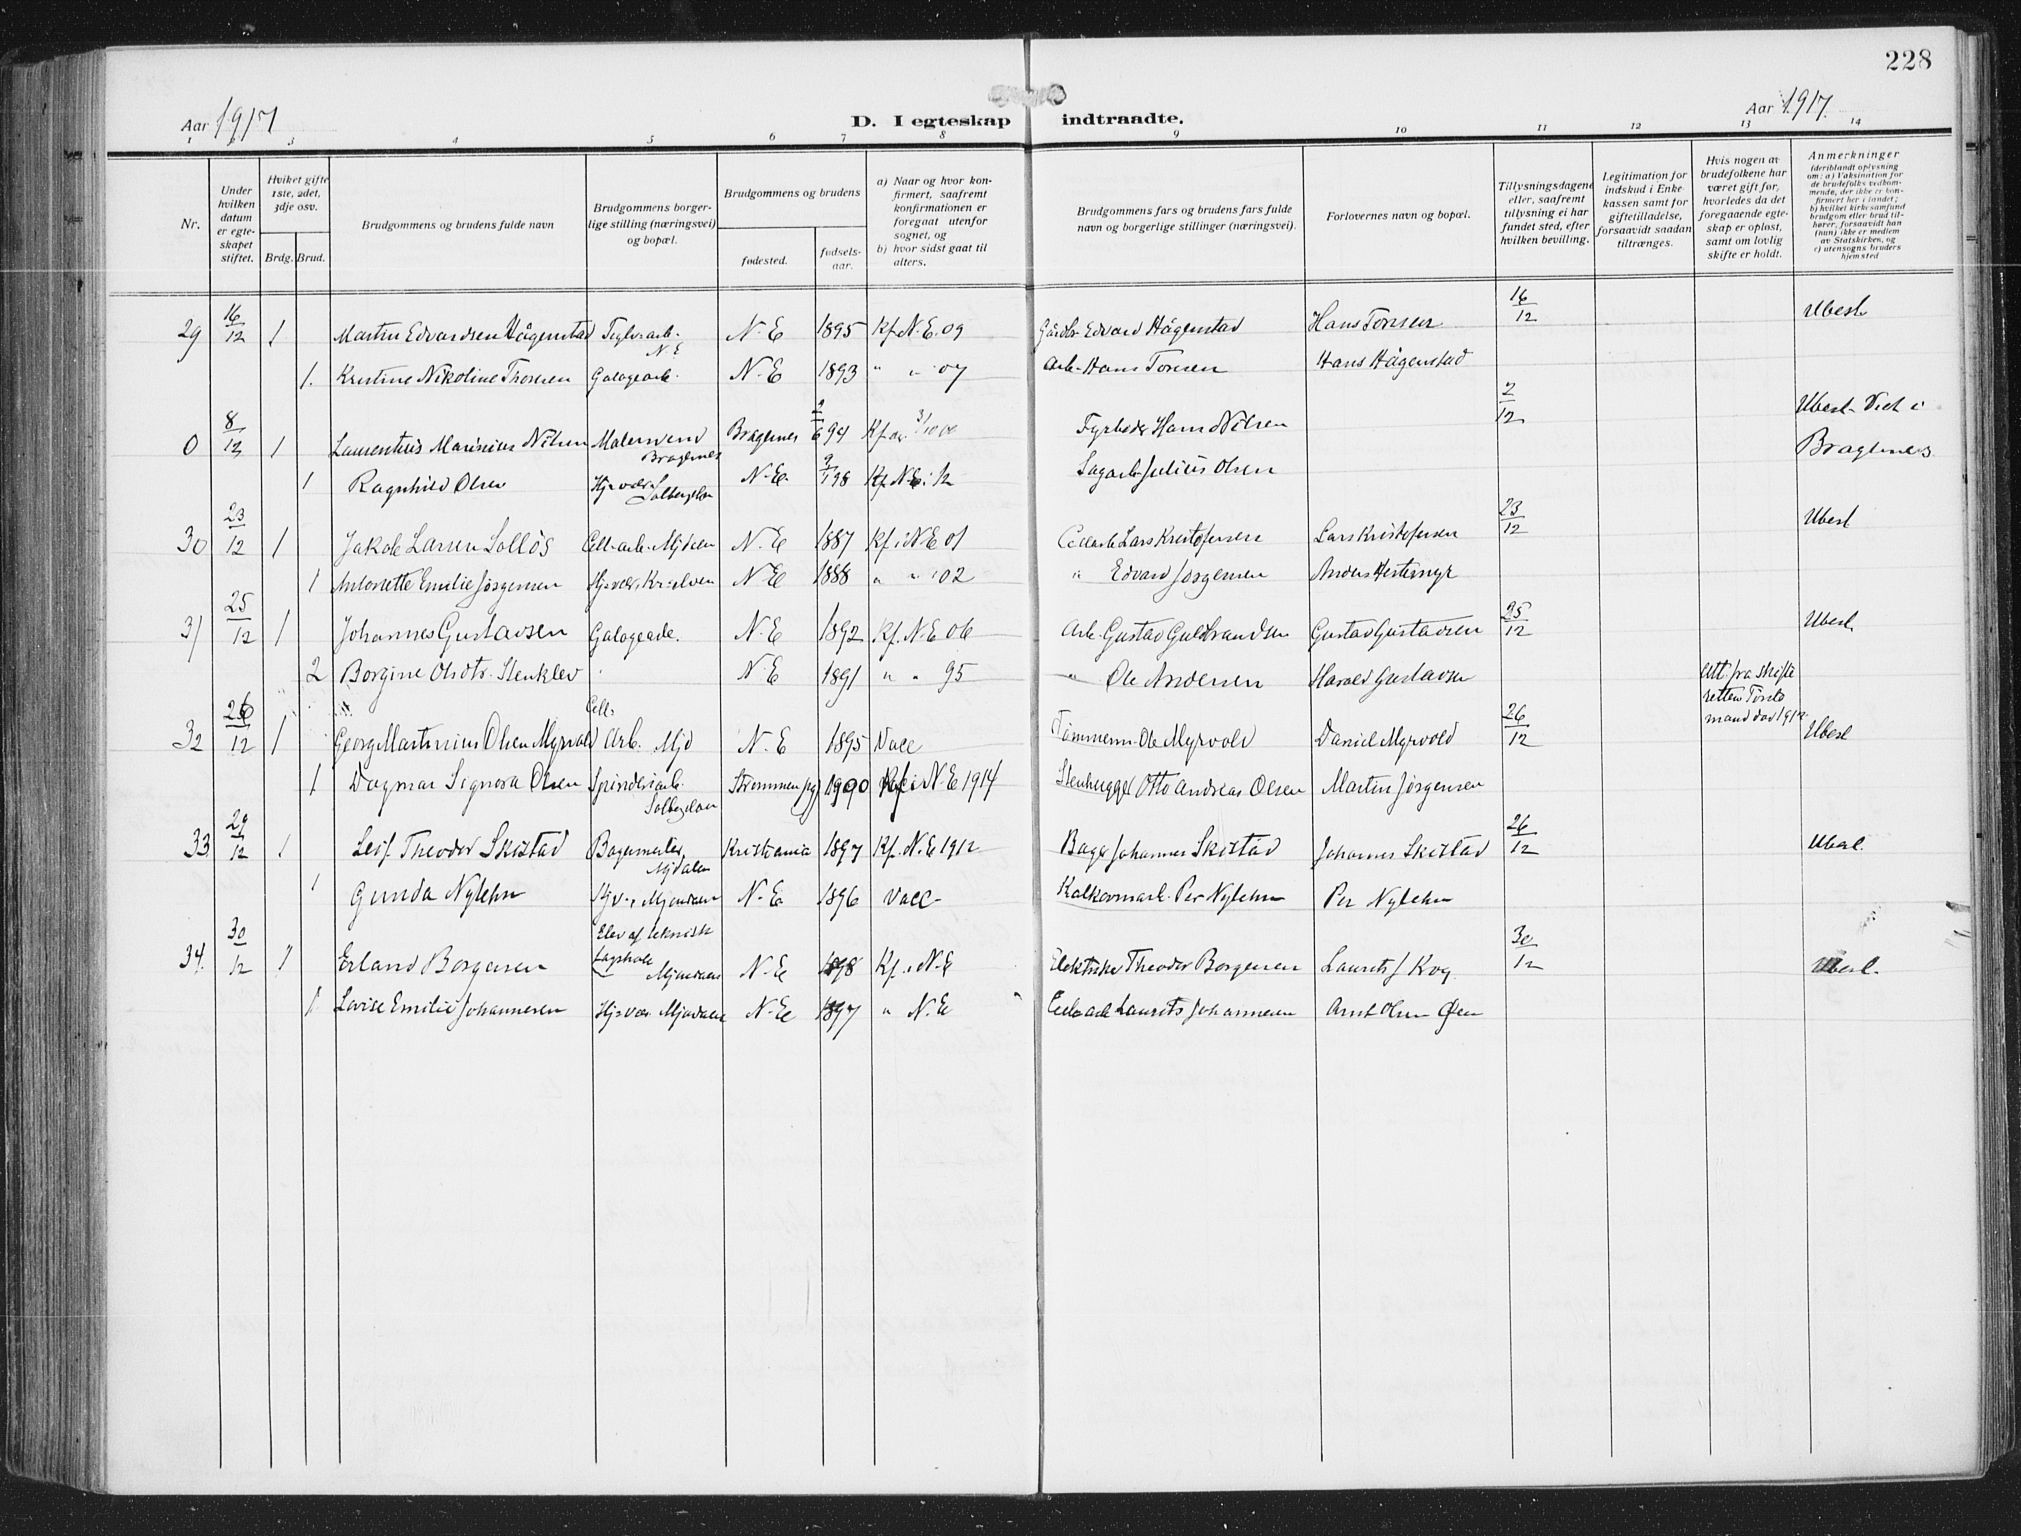 228
Aar 1917
D. I egteskap indtraadte.
Aar 1917.
1 2 3 4 5 6 7 8 9 10 11 12 13 14
Nr.
Under hvilken datum er egteskapet stiftet.
Hvilket gifte 1ste, 2det, 3dje osv.
Brdg. Brud.
Brudgommens og brudens fulde navn
Brudgommens borgerlige stilling (næringsvei) og bopæl.
Brudgommens og brudens
fødested.
fødselsaar.
a) Naar og hvor konfirmert, saafremt konfirmationen er foregaat utenfor sognet, og
b) hvor sidst gaat til alters.
Brudgommens fars og brudens fars fulde navn og borgerlige stillinger (næringsvei).
Forlovernes navn og bopæl.
Tillysningsdagene eller, saafremt tillysning ei har fundet sted, efter hvilken bevilling.
Legitimation for indskud i Enkekassen samt for giftetilladelse, forsaavidt saadan tiltrænges.
Hvis nogen av brudefolkene har været gift før, hvorledes da det foregaaende egteskap er opløst, samt om lovlig skifte er holdt.
Anmerkninger (deriblandt oplysning om: a) Vaksination for de brudefolks vedkommende, der ikke er konfirmert her i landet; b) hvilket kirkesamfund brudgom eller brud tilhører, forsaavidt han (hun) ikke er medlem av Statskirken, og c) utensogns bruders hjemsted
29 16/12 1 Martin Edvardsen Hågenstad Teglv. arb. N.E N.E 1895 Kf. N.E 09 Gårdbr Edvard Hågenstad Hans Tonsen 16/12 Ubesl
1. Kristine Nikoline Thonsen Galogearb. N.E 1893 " " 07 Arb. Hans Tonsen Hans Hågenstad
0 8/12 1 Laurentius Marinius Nilsen Malersvend Bragernes Bragernes 2/6 94 Kf. Fyrbøder Hans Nilsen 2/12 Ubesl. Viet i Bragernes
1 Ragnhild Olsen Hj. vær. Solbergelva N.E. 9/1 98 Kf. N.E. 12 Sagarb. Julius Olsen
30 23/12 1 Jakob Larsen Solløs Cell. arb. Mjdalen N.E 1887 Kf. i N.E 01 Cellarb Lars Kristofersen Lars Kristofersen 23/12 Ubesl
1 Antonette Emilie Jørgensen Hj. vær. Kr. elven N.E 1888 " " 02 " Edvard Jørgensen Anders Hestemyr
31 25/12 1 Johannes Gustavsen Galogearb. N.E 1892 Kf. N.E 06 Arb. Gustav Guldbrandsen Gustav Gustavsen 25/12 Ubesl.
2 Borgine Olsdtr. Stenklev N.E 1891 " " 95 " Ole Andersen Harald Gustavsen Att. fra skifteretten Første mand død 1912
32 26/12 1 Georg Martinius Olsen Myrvold Cell. Arb. Mjd N.E 1895 Vacc Tømmerm. Ole Myrvold Daniel Myrvold 26/12 Ubesl
1 Dagmar Signora Olsen Spinderiarb. Solbergelva Strømmen 1900 Kf i N.E 1914 Stenhugger Otto Andreas Olsen Martin Jørgensen
33 29/12 1 Leif Theodor Skistad Bagermester Mjdalen Kristiania 1897 Kf. N.E 1912 Bager Johannes Skistad Johannes Skistad 26/12 Ubesl.
1 Gunda Nylehn Hj. v. Mjøndalen N.E 1896 Vacc. Per Nylehn Per Nylehn
34. 30/12 1 Erland Borgersen Elev af teknisk Mjøndalen N.E 1898 Kf. i N.E Theodor Borgersen Laurits J Krog 30/12 Ubesl.
1 Lovise Emilie Johannesen Hj. vær. Mjøndalen N.E 1897 " N.E Cellarb Laurits Johannesen Arnt Olsen Øen